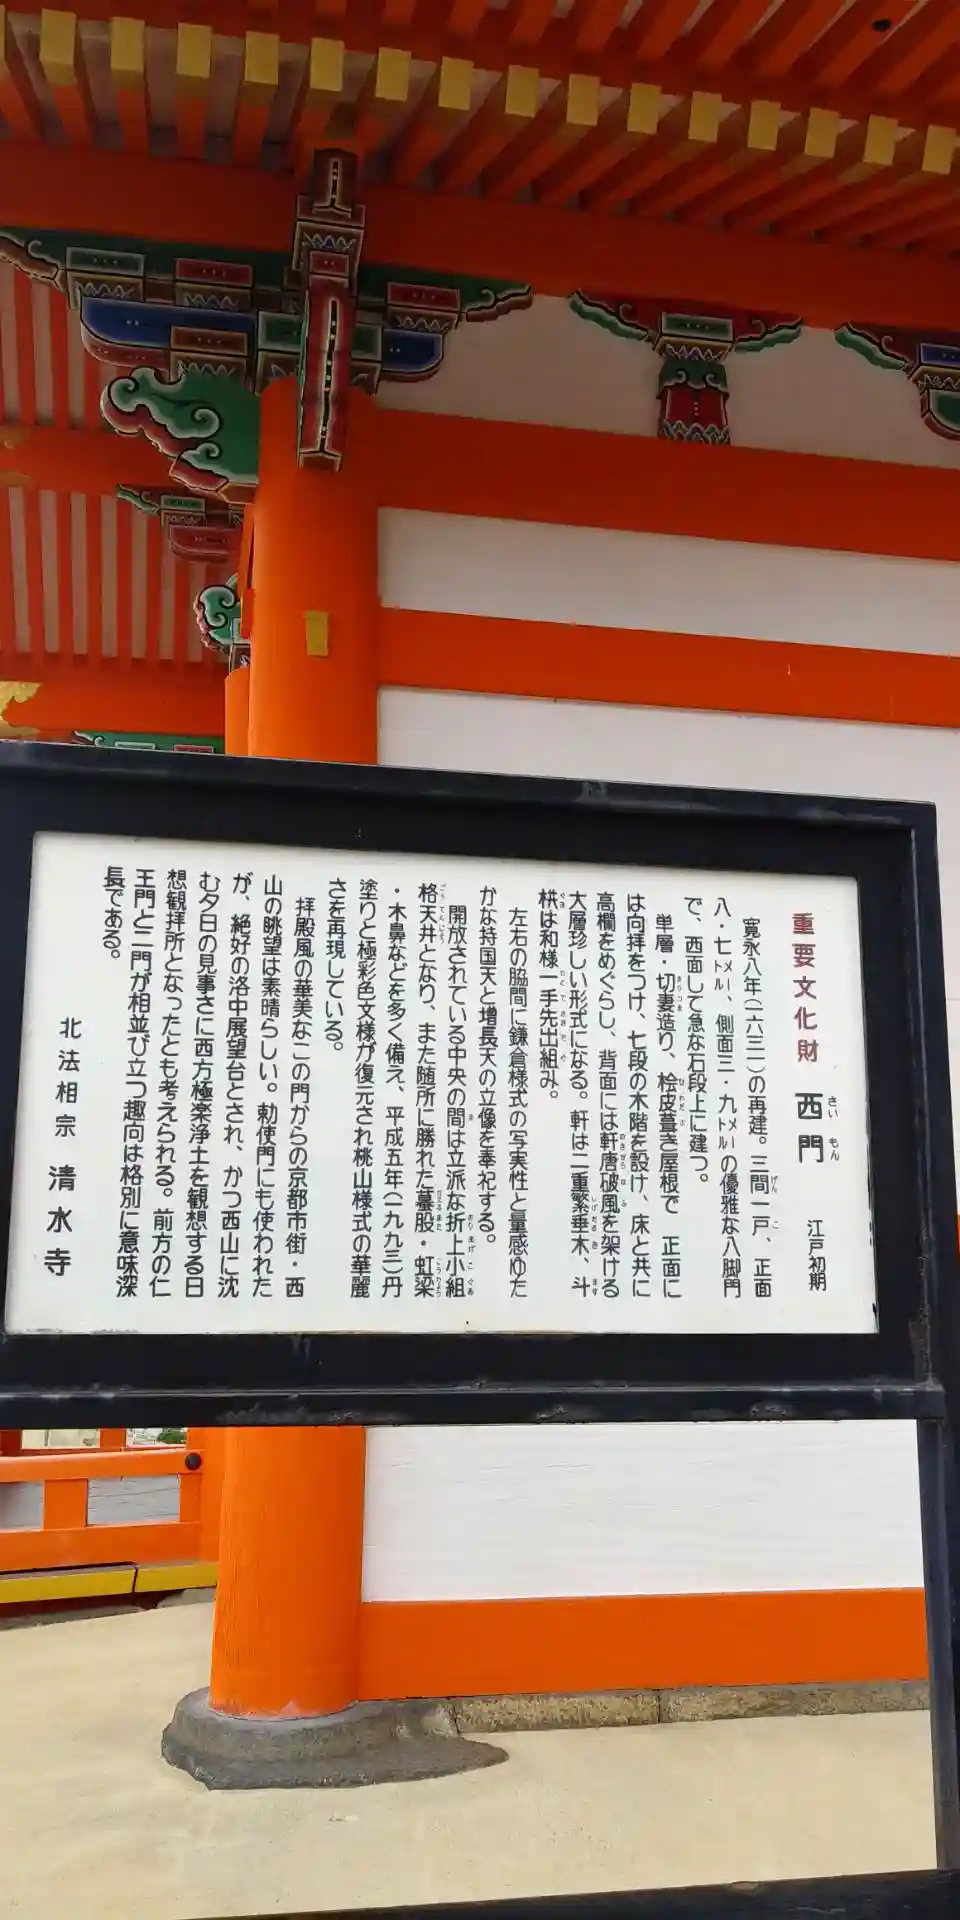 重要文化財 西門 江戸初期
寛永八年(一六三一)の再建。三間一戸、正面
八・七メートル、側面三・九メートルの優雅な八脚門
で、西面して急な石段上に建つ。
単層・切妻造り、桧皮葺き屋根で 正面に
は向拝をつけ、七段の木階を設け、床と共に
高欄をめぐらし、背面には軒唐破風を架ける
大層珍しい形式になる。軒は二重繁垂木、斗
栱は和様一手先出組み。
左右の脇間に鎌倉様式の写実性と量感ゆた
かな持国天と増長天の立像を奉祀する。
開放されている中央の間は立派な折上小組
格天井となり、また随所に勝れた蟇股・虹梁
・木鼻などを多く備え、平成五年(一九九三)丹
塗りと極彩色文様が復元され桃山様式の華麗
さを再現している。
拝殿風の華美なこの門からの京都市街・西
山の眺望は素晴らしい。勅使門にも使われた
が、絶好の洛中展望台とされ、かつ西山に沈
む夕日の見事さに西方極楽浄土を観想する日
想観拝所となったとも考えられる。前方の仁
王門と二門が相並び立つ趣向は格別に意味深
長である。
北法相宗 清水寺